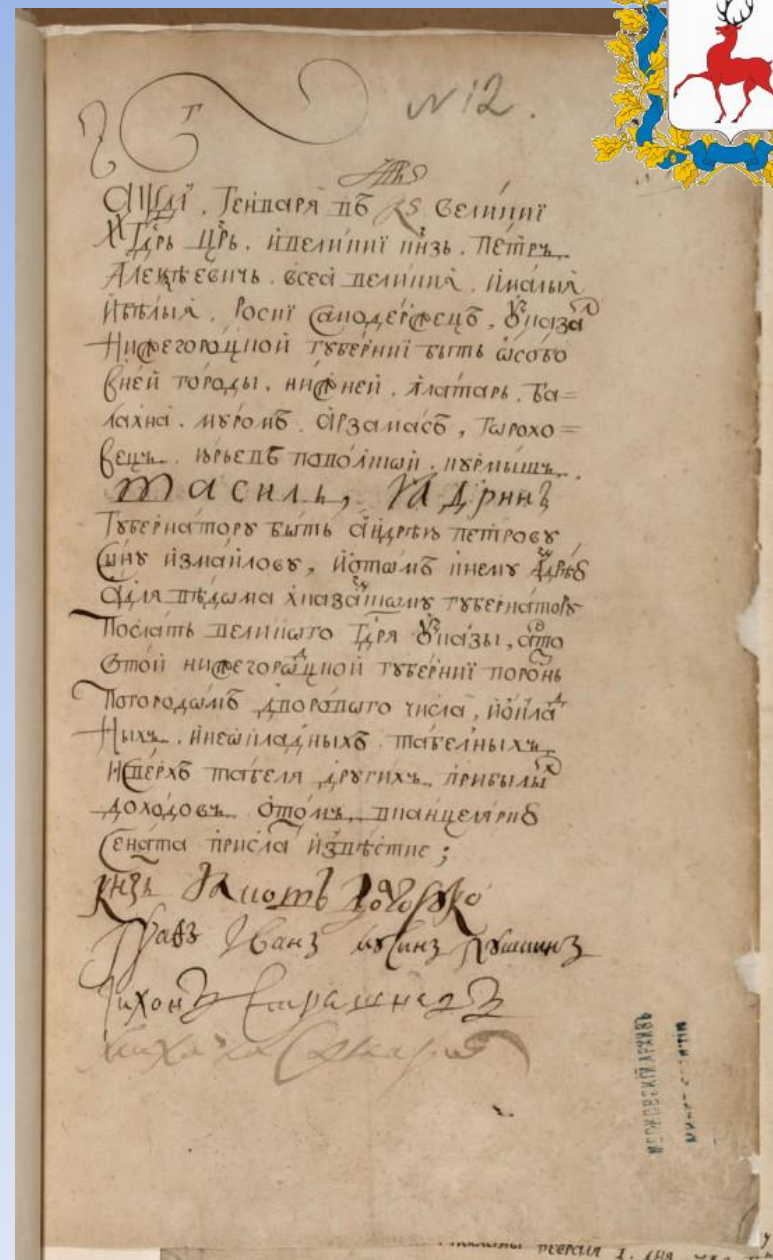 № 12.
҂аѱдı҃. Генваря въ кѕ великиї
Гд҃рь цр҃ь. и великиї кн҃зь. Петръ
Алеѯѣевичь. всеа великия. и малыя
и бѣлыя. Росиї самодержецъ, ѹказал
Нижегороцкой губерниї быть ѡсобо
в ней городы. нижней. алатарь. ба=
лахна. муромъ. арзамасъ, горохо=
вецъ. юрьевъ поволской. курмышъ.
василь, ядринъ
губернатору быть андрѣю петрову
сыну измайлову, и о томъ к нему
а для вѣдома к казанскому губернатору
послать великого гд҃ря ѹказы, а что
с той нижегороцкой губерниї порознь
по городамъ дворового числа, и ѡклад
ных. и неѡкладныхъ. табелныхъ
и сверхъ табеля других прибылых
доходов. о томъ в канцелярию
сената прислат извѣстие;
кнзь
Графъ Іванъ мусинъ пушкинъ
Тихонъ Стрешневъ
МОСКОВСКІЙ АРХИВЪ